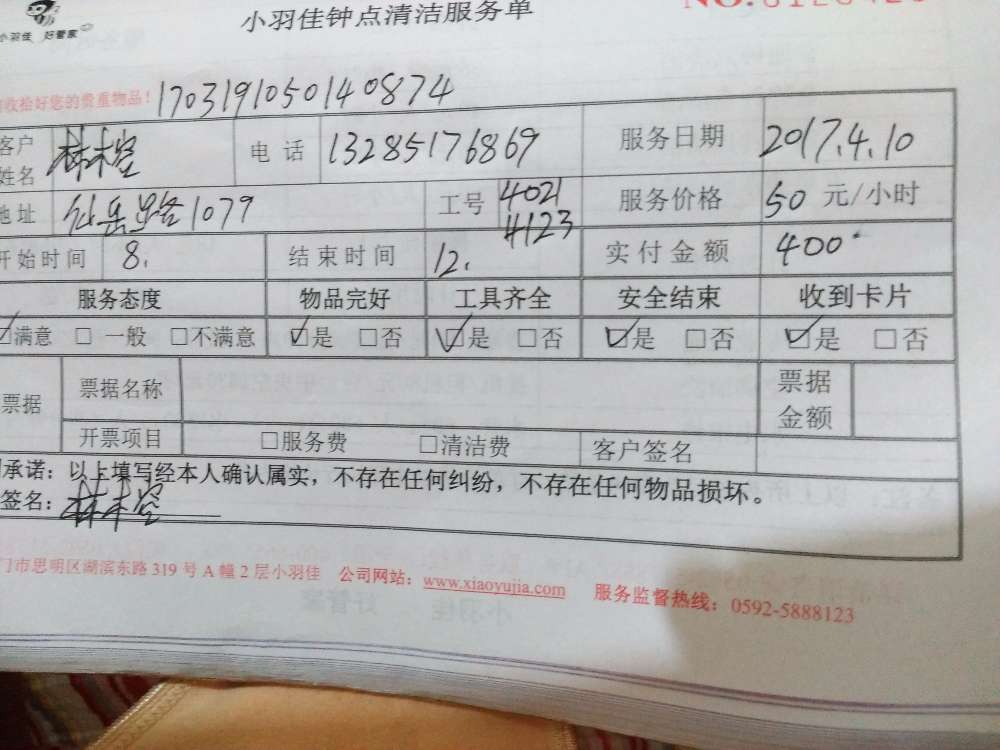 小羽佳 好管家
小羽佳钟点清洁服务单
NO.
收拾好您的贵重物品！ 170319105014 0874
客户姓名 林木容 电话 13285176869 服务日期 2017.4.10
地址 仙岳路1079 工号 4021 4123 服务价格 50 元/小时
开始时间 8. 结束时间 12. 实付金额 400
服务态度 物品完好 工具齐全 安全结束 收到卡片
☑满意 □一般 □不满意 ☑是 □否 ☑是 □否 ☑是 □否 ☑是 □否
票据 票据名称 票据金额
开票项目 □服务费 □清洁费 客户签名
承诺：以上填写经本人确认属实，不存在任何纠纷，不存在任何物品损坏。
签名：林木容
门市思明区湖滨东路 319 号 A 幢 2 层小羽佳 公司网站：www.xiaoyujia.com 服务监督热线：0592-5888123